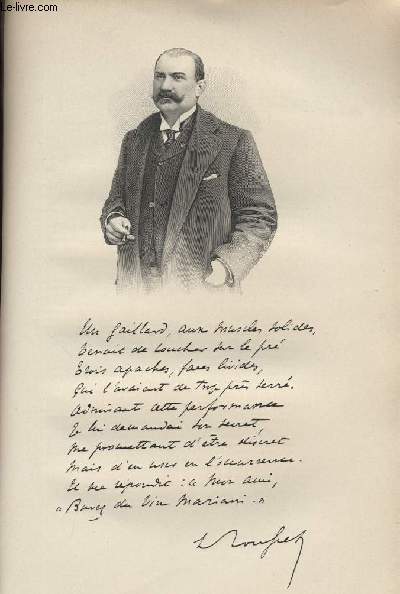 © Le-livre.com
Un gaillard, aux muscles solides,
Venait de coucher sur le pré
Trois apaches, faces livides,
Qui l'avaient de trop près serré.
Admirant cette performance
Je lui demandai son secret,
me promettant d'être discret
Mais d'en user en l'occurrence.
Et me répondit : "Mon ami,
"Buvez du Vin Mariani."